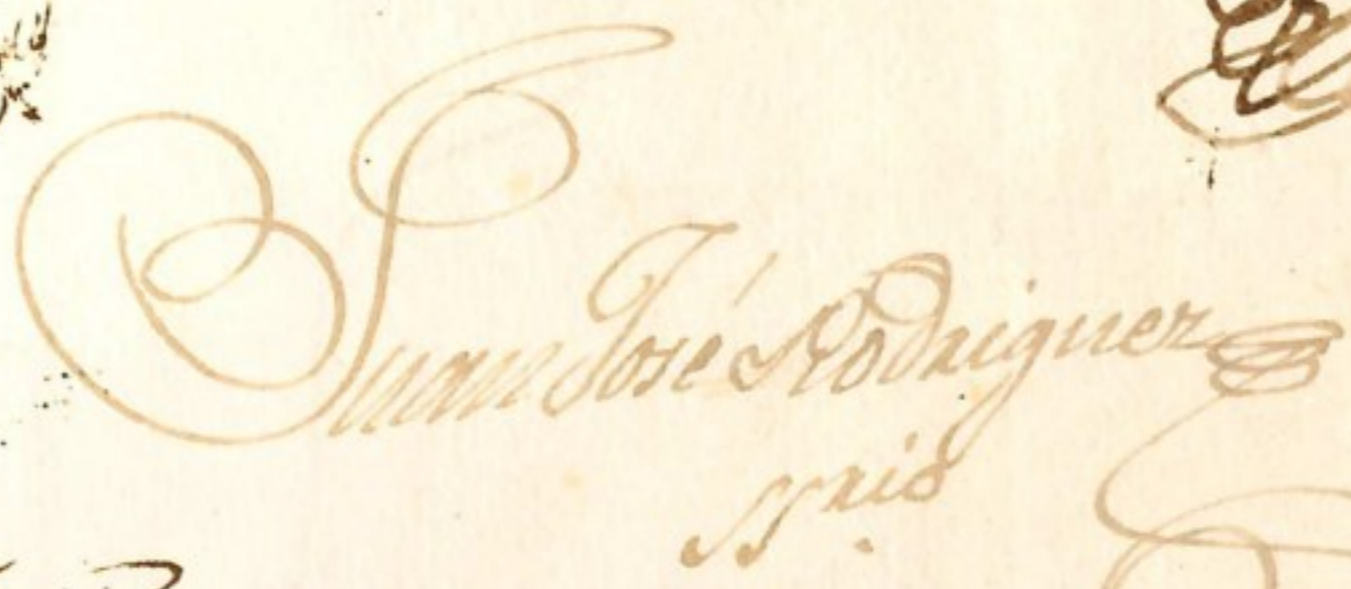 Juan José Rodriguez
SSrio.